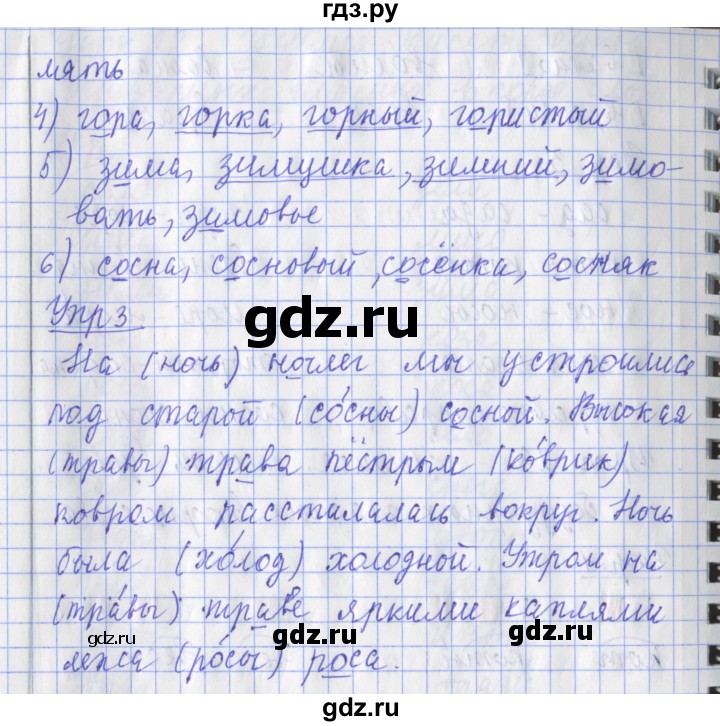 гдз.ру
мять
4) гора, горка, горный, гористый
5) зима, зимушка, зимний, зимо-
вать, зимовье
6) сосна, сосновый, сосёнка, сосняк
Упр 3
gdz.ru
На (ночь) ночлег мы устроились
под старой (со́сны) сосной. Высокая
(тра́вы) трава пёстрым (ко́врик)
ковром расстилалась вокруг. Ночь
gdz.ru
была (хо́лод) холодной. Утром на
(тра́вы) траве яркими каплями
gdz.ru gdz.ru
лежса (ро́сы) роса.
gdz.ru